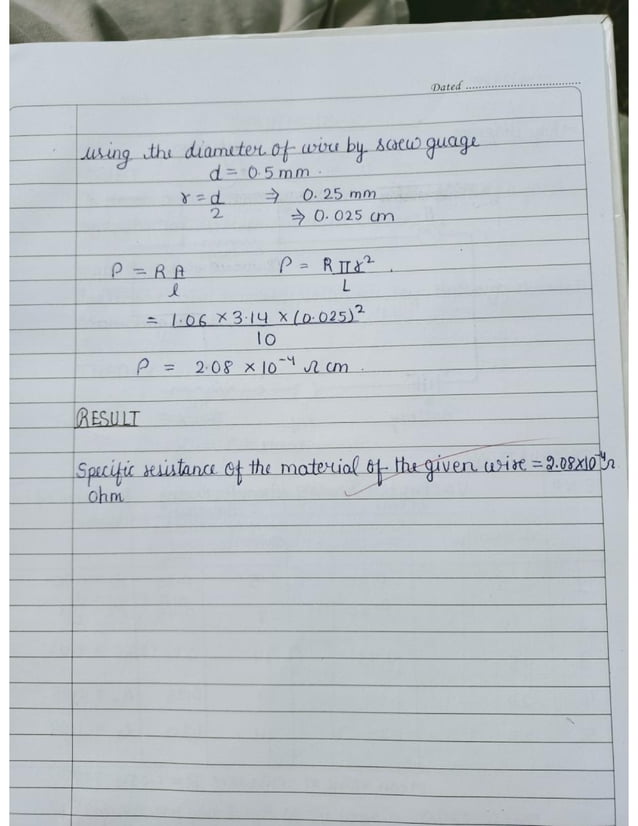 Dated
using the diameter of wire by screw guage
d = 0.5 mm.
r = d/2 ⇒ 0.25 mm
⇒ 0.025 cm
ρ = R A/l ρ = R π r²/L.
= 1.06 × 3.14 × (0.025)²/10
ρ = 2.08 × 10⁻⁴ Ω cm.
RESULT
Specific resistance of the material of the given wire = 2.08×10⁻⁴Ω
Ohm